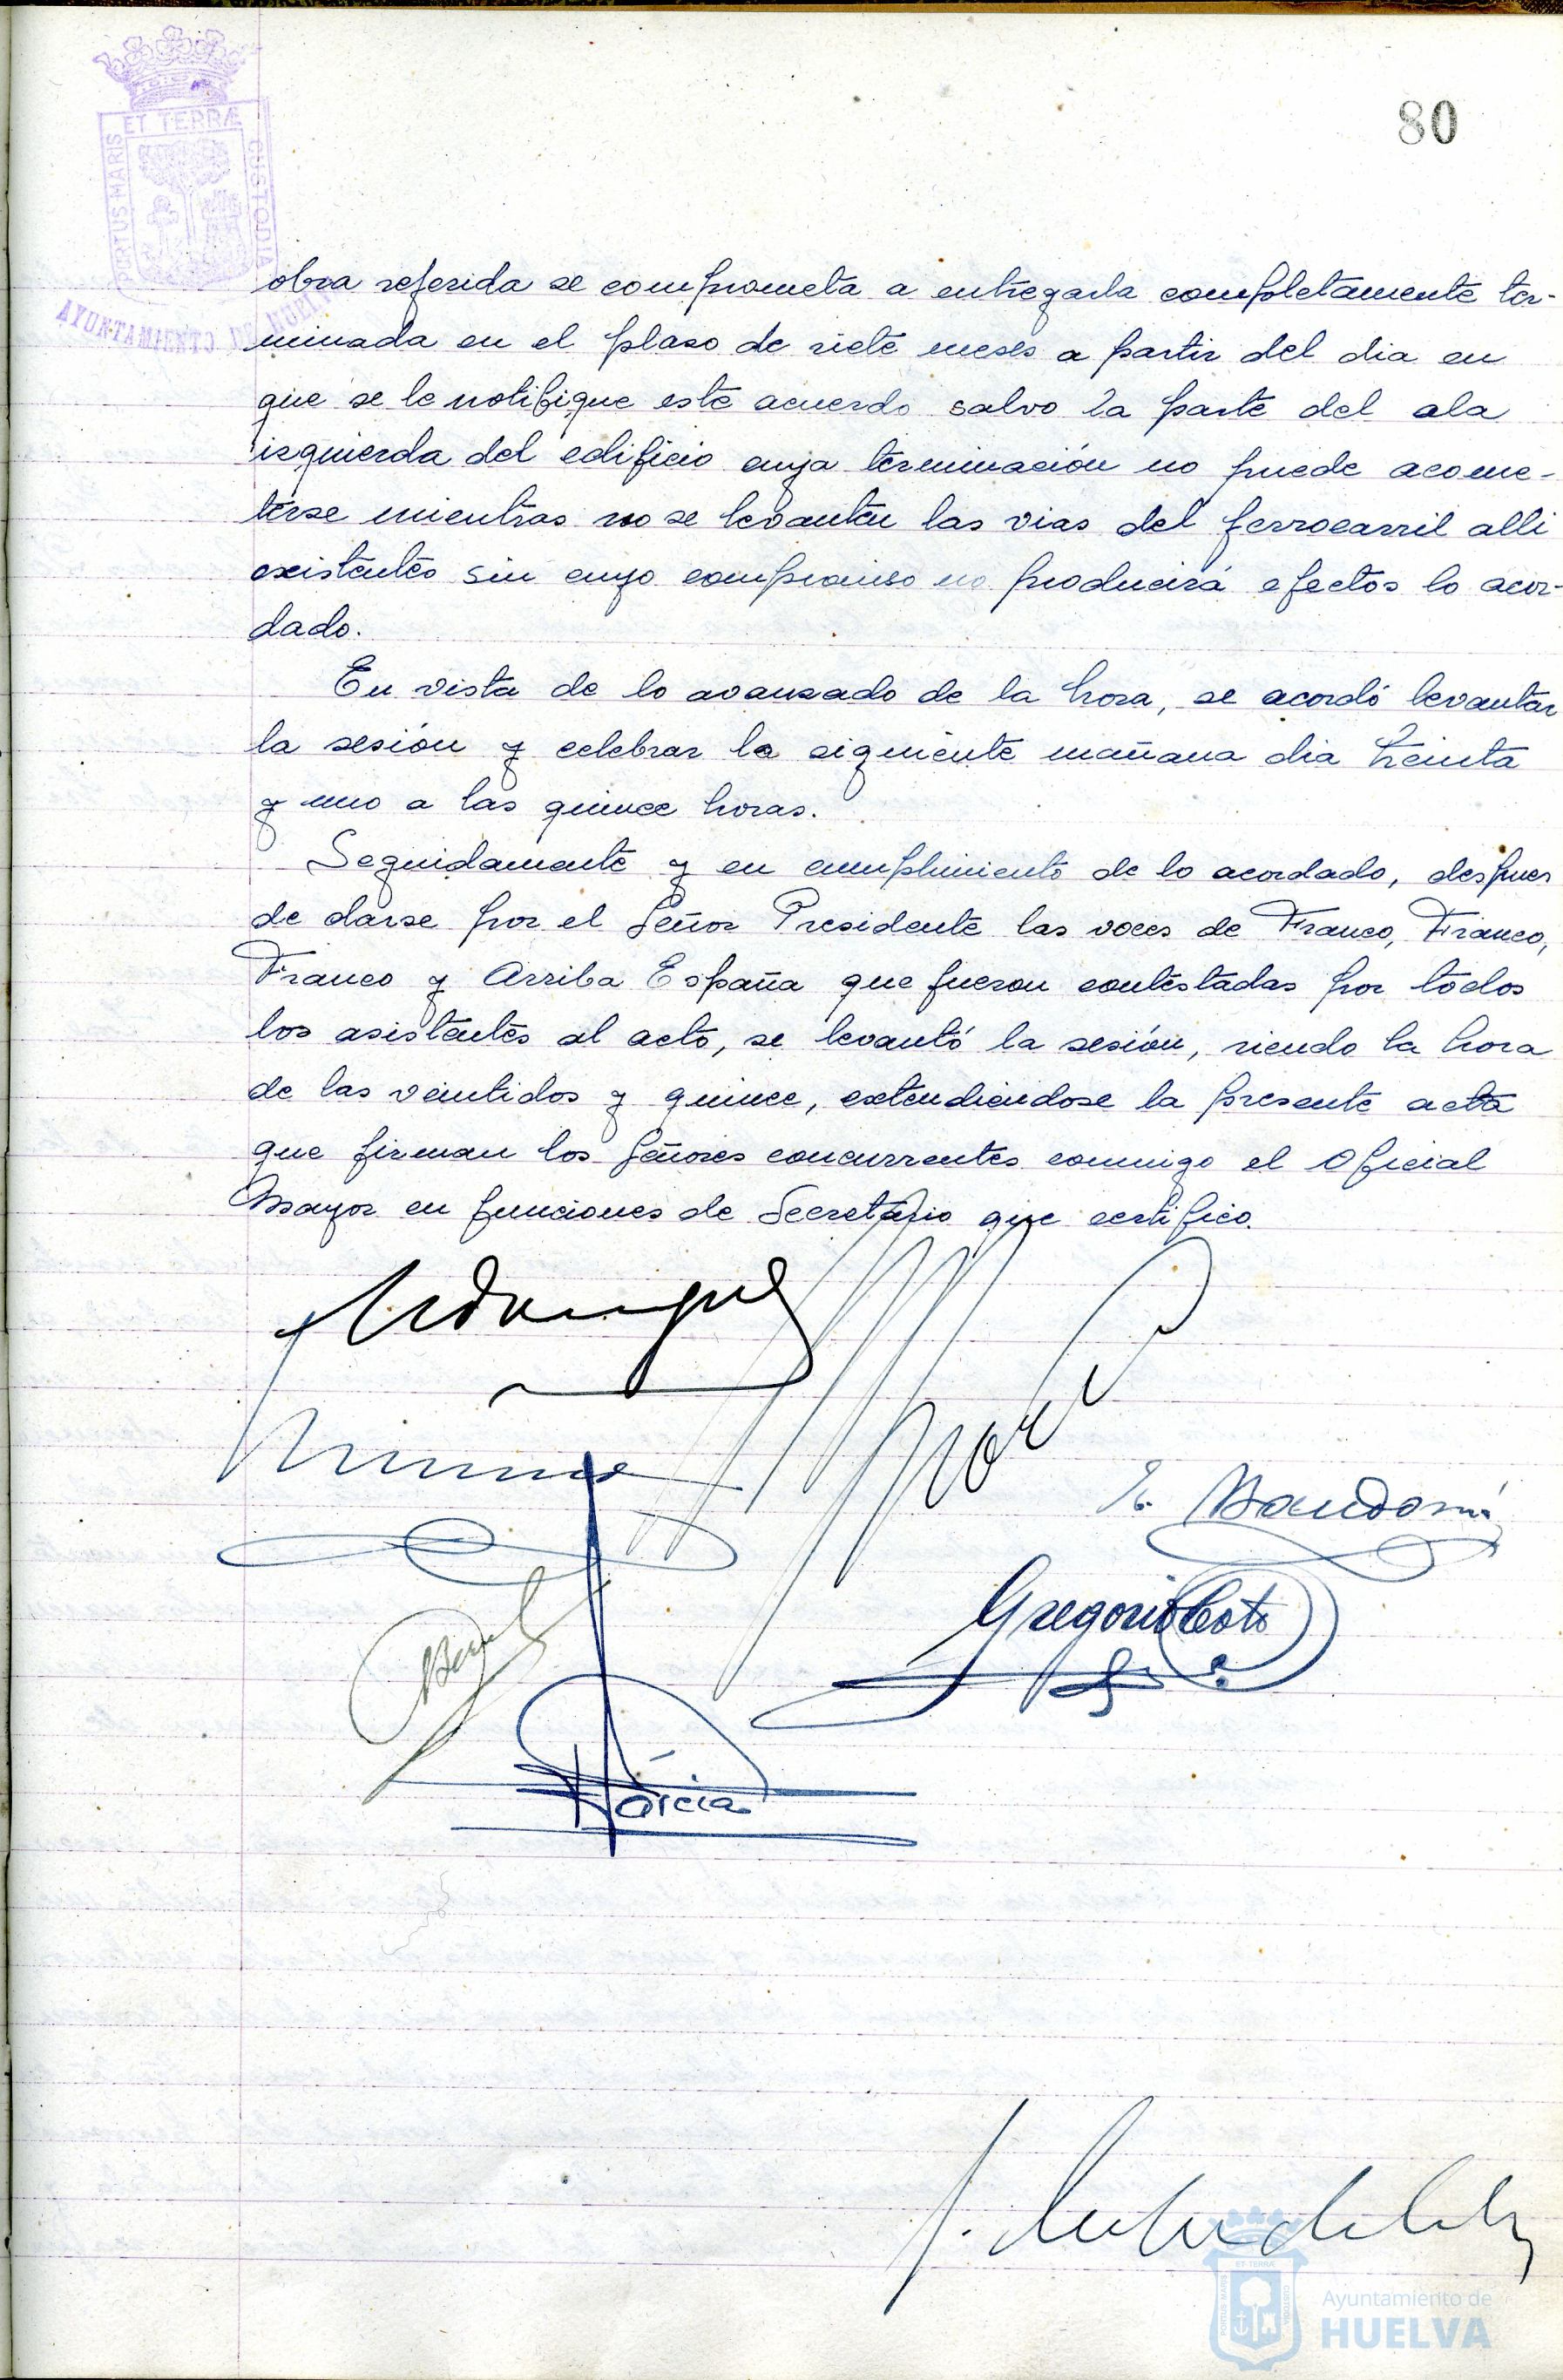 80
PORTUS MARIS ET TERRÆ CUSTODIA
AYUNTAMIENTO DE HUELVA
obra referida se comprometa a entregarla completamente ter-
minada en el plaso de siete meses a partir del dia en
que se le notifique este acuerdo salvo la parte del ala
izquierda del edificio cuya terminación no puede acome-
terse mientras no se levanten las vias del ferrocarril alli
existentes sin cuyo compromiso no producirá efectos lo acor-
dado.
En vista de lo avanzado de la hora, se acordó levantar
la sesión y celebrar la siguiente mañana dia treinta
y uno a las quince horas.
Seguidamente y en cumplimiento de lo acordado, despues
de darse por el Señor Presidente las voces de Franco, Franco,
Franco y Arriba España que fueron contestadas por todos
los asistentes al acto, se levantó la sesión, siendo la hora
de las veintidos y quince, extendiendose la presente acta
que firman los Señores concurrentes conmigo el Oficial
Mayor en funciones de Secretario que certifico.
Gregorio Coto
García
Ayuntamiento de
HUELVA